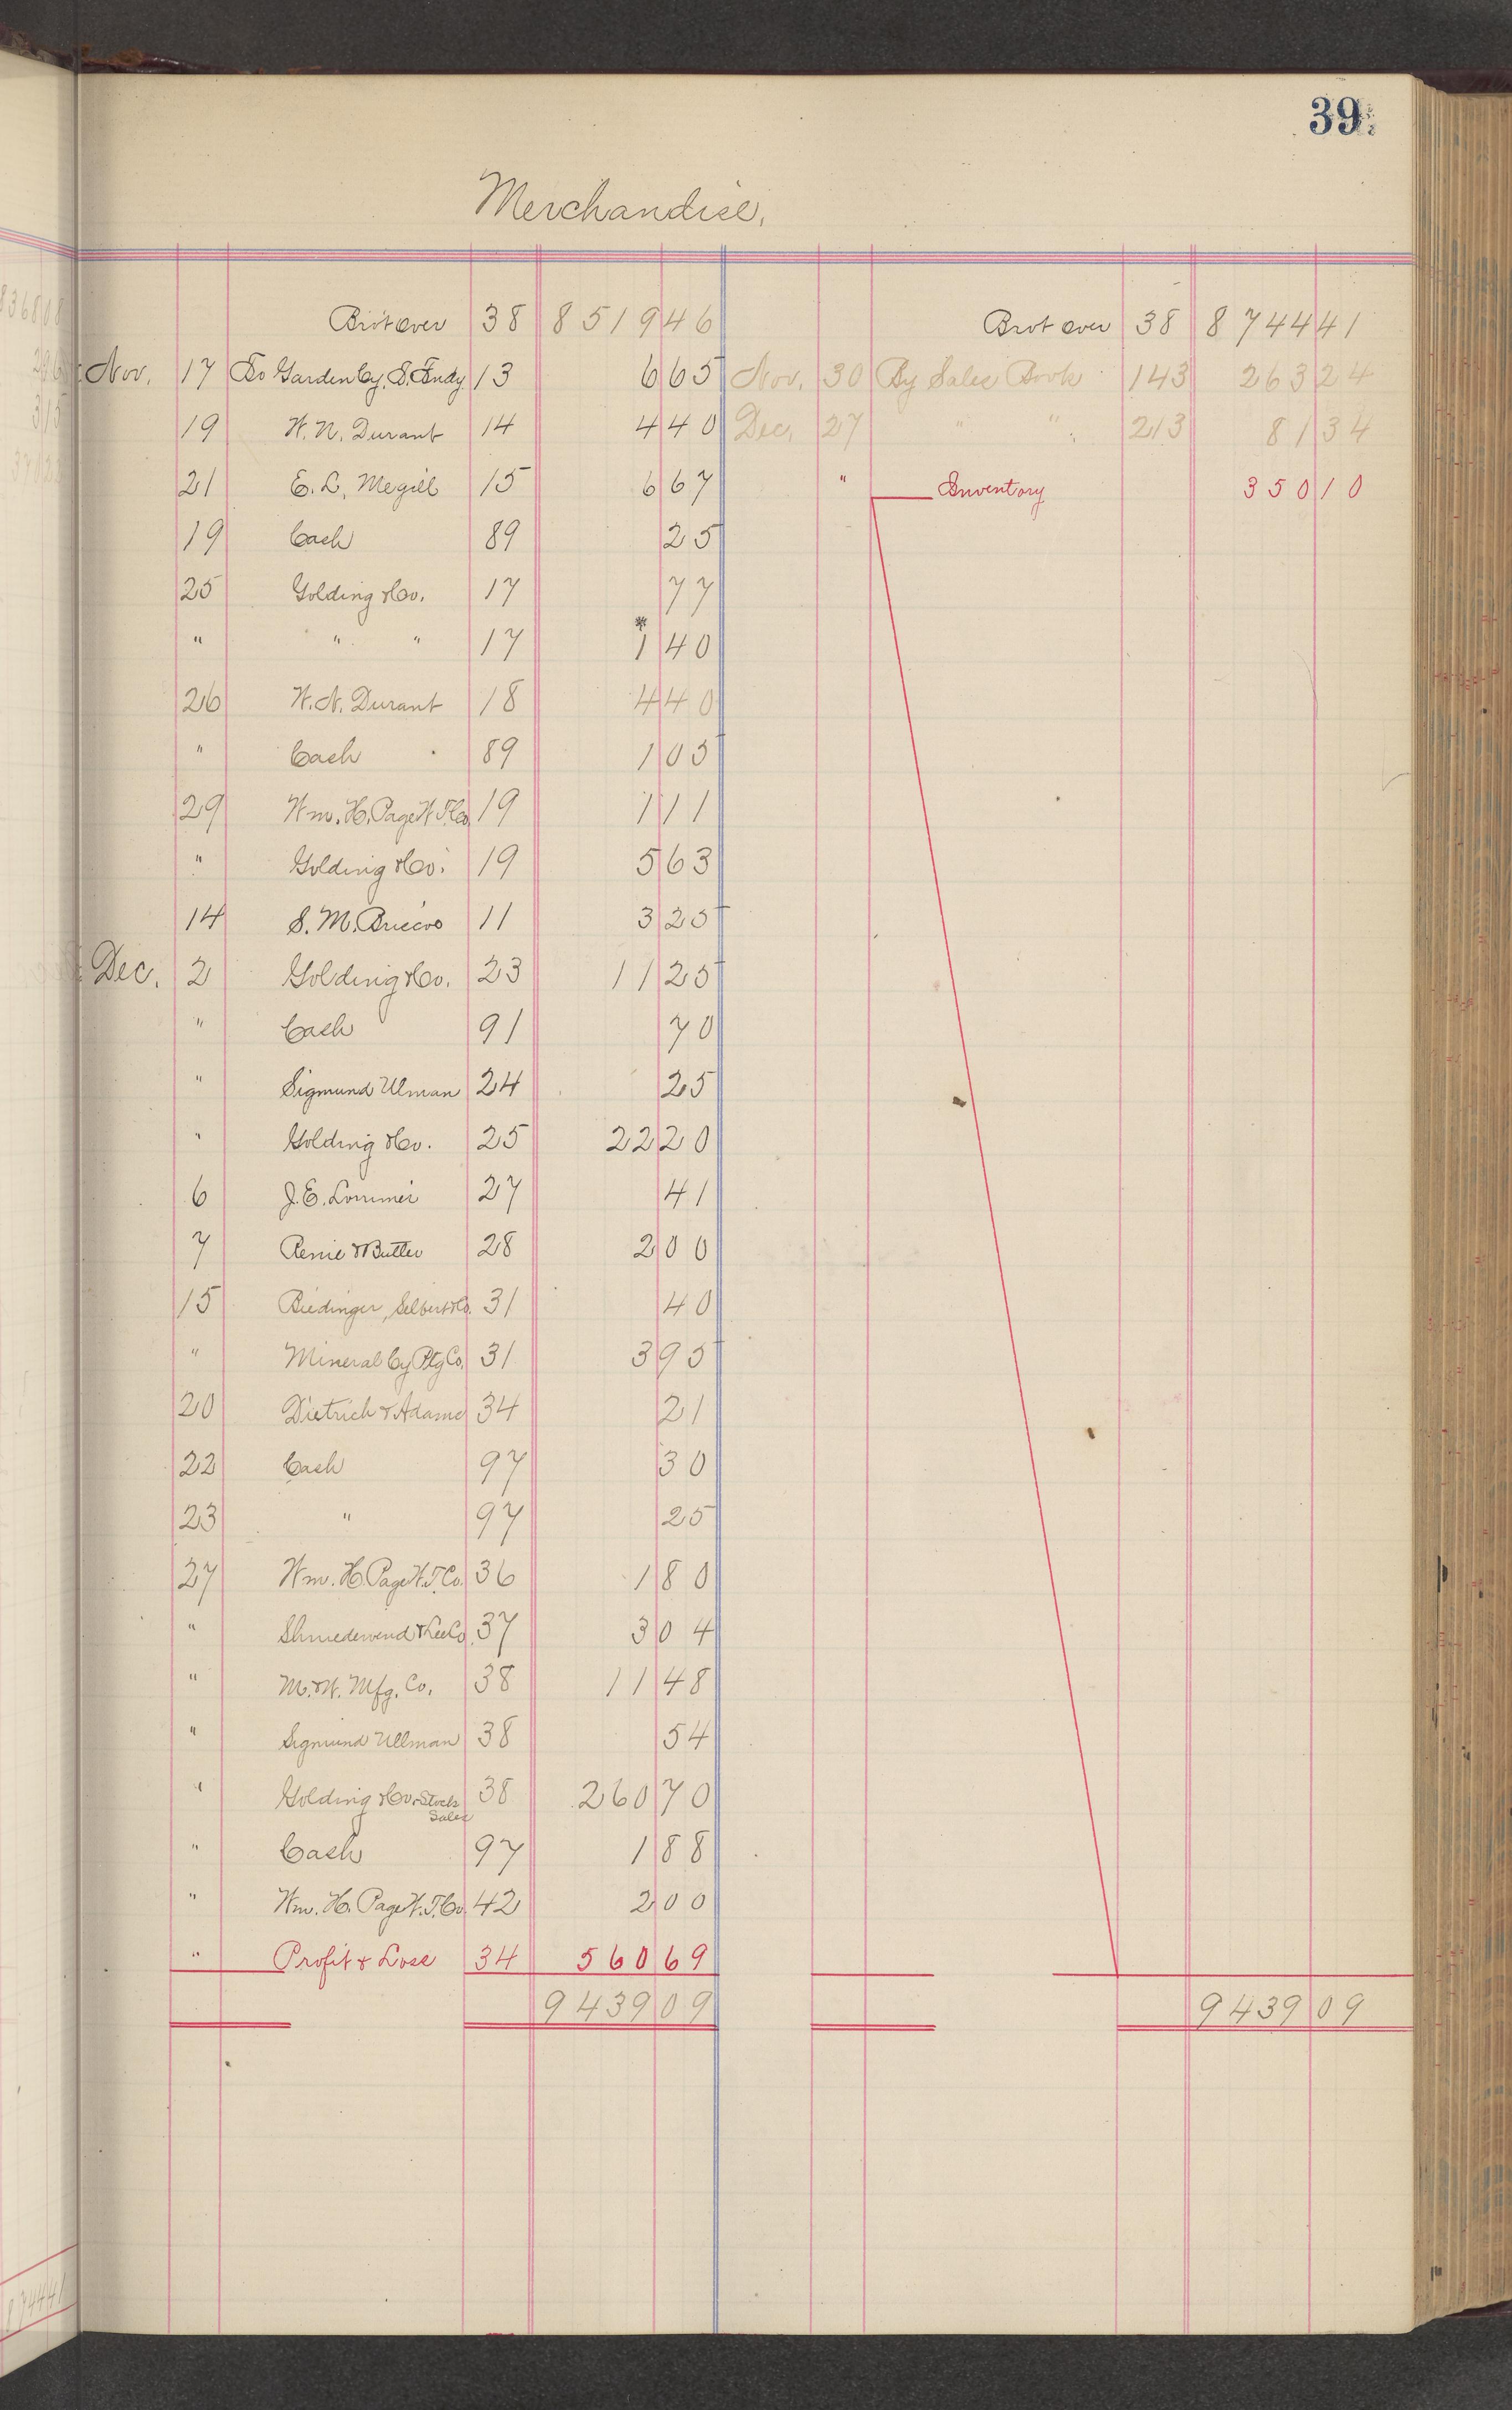 39
Merchandise.
Brot over 38 8519 46 Brot over 38 8744 41
Nov. 17 To Garden Cy. S. Fndy 13 6 65 Nov. 30 By Sales Book 143 263 24
19 W. N. Durant 14 4 40 Dec. 27 " " 213 81 34
21 E. L. Megill 15 6 67 " Inventory 350 10
19 Cash 89 25
25 Golding & Co. 17 77
" " " 17 * 1 40
26 W. N. Durant 18 4 40
" Cash 89 1 05
29 Wm. H. Page W. T. Co. 19 1 11
" Golding & Co. 19 5 63
14 S. M. 11 3 25
Dec. 2 Golding & Co. 23 11 25
" Cash 91 70
" Sigmund Ulman 24 25
" Golding & Co. 25 22 20
6 J. E. Lorimer 27 41
7 & Butler 28 2 00
15 Biedinger, Selbert & Co. 31 40
" Mineral Cy Ptg Co. 31 3 95
20 Dietrich & Adams 34 21
22 Cash 97 30
23 " 97 25
27 Wm. H. Page W. T. Co. 36 1 80
" Shniedewend & Lee Co 37 3 04
" M. & W. Mfg. Co. 38 11 48
" Sigmund Ullman 38 54
" Golding & Co. Stock Sales 38 260 70
" Cash 97 1 88
" Wm. H. Page W. T. Co. 42 2 00
" Profit & Loss 34 560 69
9439 09 9439 09